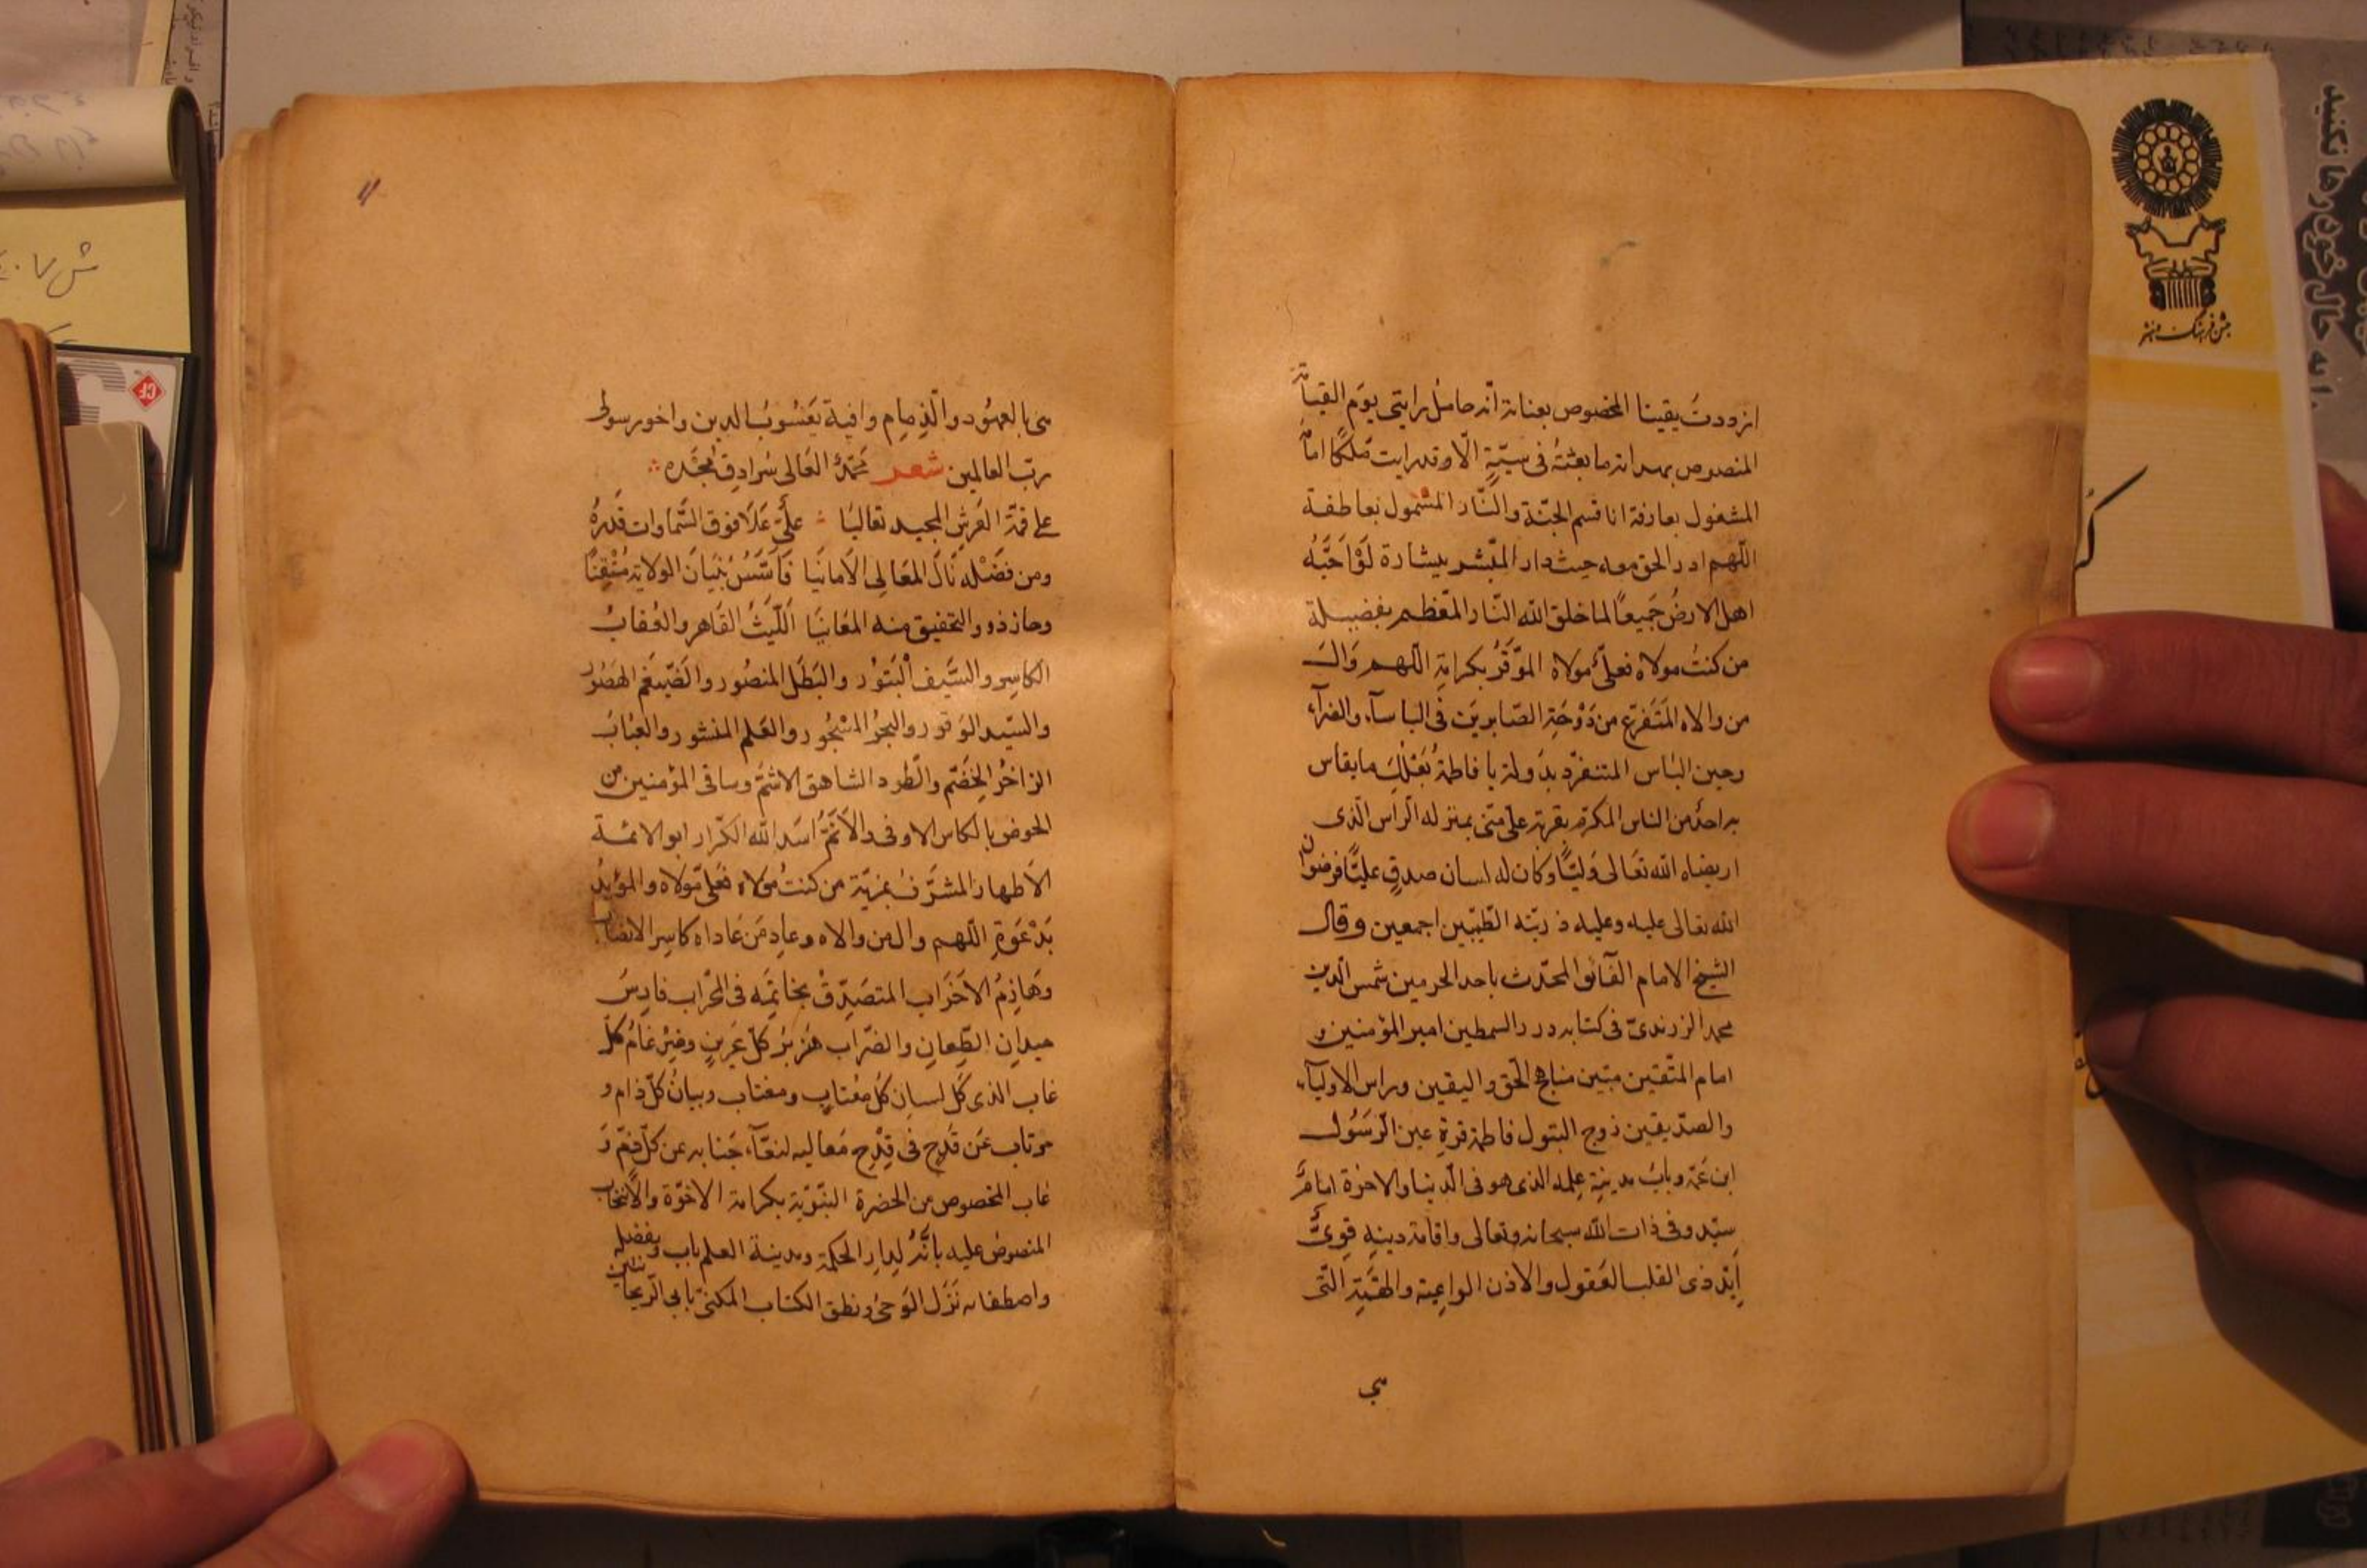 ازددت يقينا المخصوص بعناية انّه حامل رايتي يوم القيامة
المنصوص بمدانة ما بعثته في سريّة الّا وقد رايت ملكًا امامه
المشغول بعارفة انا قسيم الجنّة والنّار المشمول بعاطفة
اللّهم ادر الحق معه حيث دار المبشر ببشارة لَوْاَحَبَّهُ
اهل الارض جَميعًا لما خلق الله النّار المعظم بفضيلة
من كنتُ مولاه فعليّ مولاه الموقّرُ بكرامة اللّهم وال
من والاه المتفرّع من دَوْحَةِ الصّابرين في الباسآء والضرآء
وحين البٔاس المتنفرّد بدولة يا فاطمة بَعْلُكِ ما يقاس
به احدٌ من الناس المكرّم بقربة عليّ منّي بمنزله الراس الّذى
ارتضاه الله تعالى وَليًّا وكان له لسان صدقٍ عليًّا فرضوان
الله تعالى عليه وعليه ذريّته الطّيّبين اجمعين وقال
الشيخ الامام الفائق المحدّث باحد الحرمين شمس الدّين
محمد الزرندىّ فى كتابه درر السمطين امير المؤمنين و
امام المتّقين مبيّن مناهج الحقّ واليقين وراس الاوليآء
والصدّيقين زوج البتول فاطمة قرة عين الرّسُول
ابن عَمّه وبابُ مدينةِ علمه الذى هو فى الدّنيا والاخرة امامٌ
سيّد وفى ذات الله سبحانه وتعالى واقامة دينه قوىٌّ
اَيِّد ذى القلب العَقول والاذن الواعية والهمّةِ التّى
هي
١١
هى بالعهُود والذِمامِ وافية يَعْسُوبُ الدين واخو رسول
ربّ العالمين شعر محمّدٌ العَالى سُرادِق مَجْدِه
على قمّة العَرشِ المجيد تعاليَا عليٌّ عَلَا فوق السَّماوات قَدرُهُ
ومن فَضْلِه نَالَ المعَالى الاَمانيَا فَاَسَّسَ بُنيَانَ الولاية مُتْقِنًا
وحاز ذوو التحقيق منه المعَانيَا اَللّيثُ القَاهر والعُقابُ
الكاسِر والسَّيف البَتوُر والبَطَل المنصُور والضّيغَم الهَصُور
والسّيد الوَقور والبحرُ المسْجُور والعَلم المنشور والعبَابُ
الزاخرُ الخِضَمّ والطّود الشاهق الاشَمّ وساقى المؤمنين من
الحوض بالكاس الاوفى والاَتَمُّ اَسَد الله الكرّار ابو الائمة
الاَطهار المشرّف بمَزيّة من كنتُ مولاه فعليٌّ مولاه والمؤيّد
بَدَعْوَةِ اللّهم وال من والاه وعادِ مَن عَاداه كاسِر الانصاب
وهَازِمُ الاَحزاب المتصَدّقُ بخاتِمَه فى المحراب فارِسُ
ميدانِ الطّعانِ والضّراب هَزبرُ كلّ عَرينٍ وضِرغامُ كلّ
غاب الذى كلّ لسان كل مُغتابٍ ومغتاب وبيانُ كلّ ذام و
مرتاب عَن قَدْحٍ فى قِدْحِ مَعاليه لنقآء جَنابه عن كلّ ذمّ و
عاب المخصوص من الحضرة النبّويّة بكرامة الاخوّة والانتخاب
المنصوص عليه بانّه لِدارِ الحكمة ومدينة العلم باب وبفضله
واصطفائه نَزَل الوَحىُ ونطق الكتاب المكنىّ بابى الرّيحانتين
جشن فرهنگ و هنر